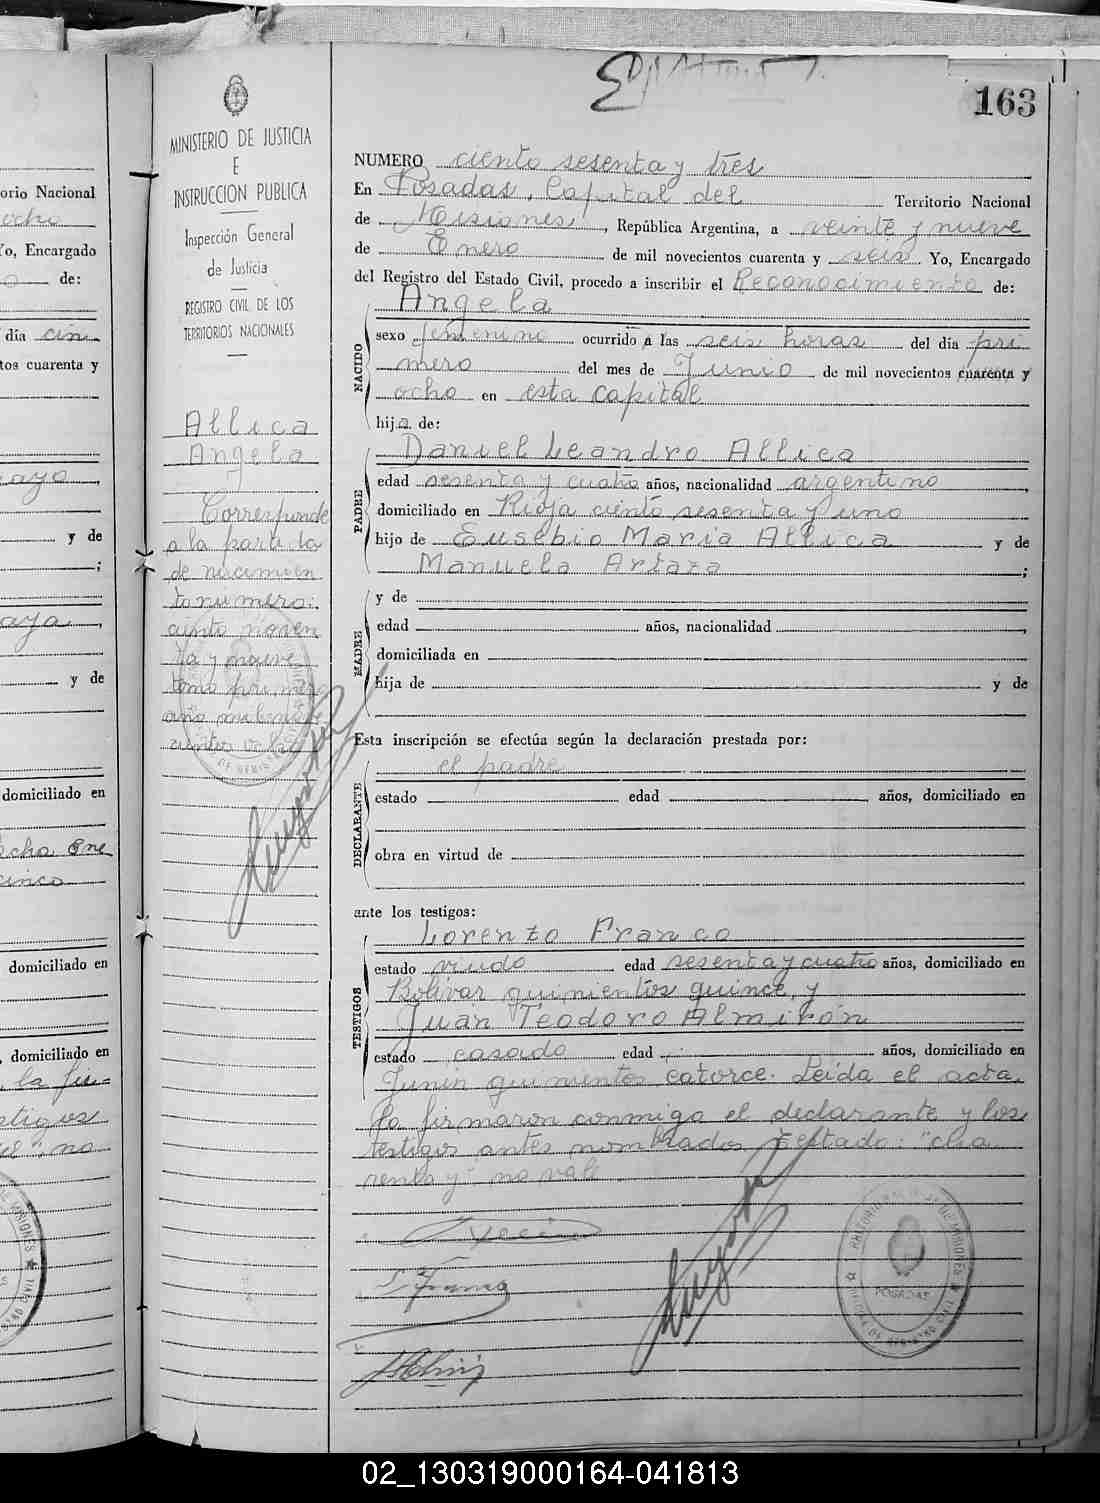 163
MINISTERIO DE JUSTICIA
E
INSTRUCCION PUBLICA
Inspección General
de Justicia
REGISTRO CIVIL DE LOS
TERRITORIOS NACIONALES
Allica
Angela
Corresponde
a la partida
de nacimien
to número:
ciento noven
ta y nueve
tomo primero
año mil nove
cientos
NUMERO ciento sesenta y tres
En Posadas, Capital del Territorio Nacional
de Misiones, República Argentina, a veinte y nueve
de Enero de mil novecientos cuarenta y seis Yo, Encargado
del Registro del Estado Civil, procedo a inscribir el Reconocimiento de:
Angela
NACIDO
sexo femenino ocurrido a las seis horas del día pri
mero del mes de Junio de mil novecientos cuarenta y
ocho en esta capital
hija de:
PADRE
Daniel Leandro Allica
edad sesenta y cuatro años, nacionalidad argentino
domiciliado en Rioja ciento sesenta y uno
hijo de Eusebio Maria Allica y de
Manuela Artaza ;
MADRE
y de
edad años, nacionalidad
domiciliada en
hija de y de
Esta inscripción se efectúa según la declaración prestada por:
DECLARANTE
el padre
estado edad años, domiciliado en
obra en virtud de
ante los testigos:
TESTIGOS
Lorenzo Franco
estado viudo edad sesenta y cuatro años, domiciliado en
Bolivar quinientos quince, y
Juan Teodoro Almirón
estado casado edad años, domiciliado en
Junin quinientos catorce. Leída el acta,
la firmaron conmigo el declarante y los
testigos antes nombrados. Testado: "cua
renta y" no vale
L. Franco
POSADAS
orio Nacional
ocho
Yo, Encargado
de:
día cin
tos cuarenta y
y de
;
y de
domiciliado en
cinco
domiciliado en
, domiciliado en
02_130319000164-041813